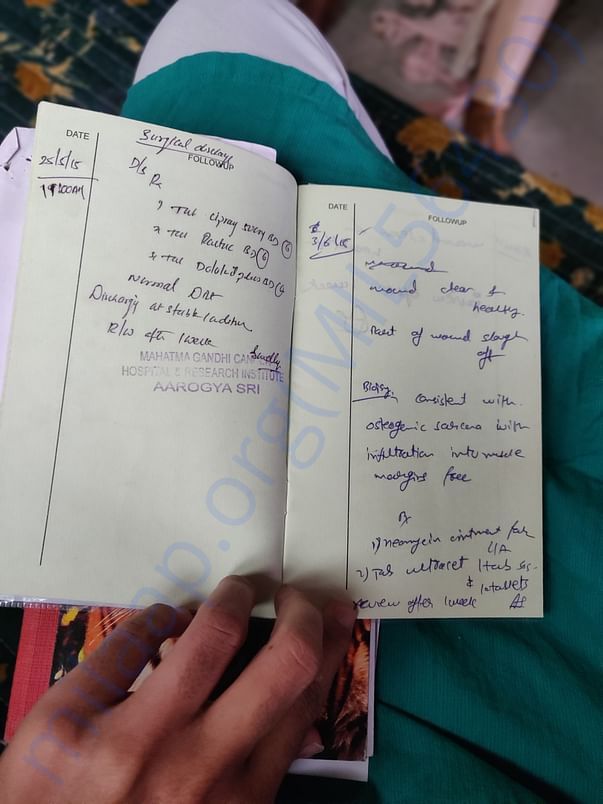 DATE
Surgical
FOLLOWUP
25/5/15
D/s Rx
1) Tab BD 6
Tab BD 6
Tab BD
Normal Diet
Discharge at stable
R/w after 1 week
MAHATMA GANDHI CANCER
HOSPITAL & RESEARCH INSTITUTE
AAROGYA SRI
DATE
FOLLOWUP
3/6/15
wound clear &
healthy.
Part of wound slough
off
Biopsy, consistent with
osteogenic sarcoma with
infiltration into muscle
margins free
Rx
1) neomycin ointment for
L/A
2) Tab ultracet 1 tab
10 tablets
review after 1 week
milaap.org(MIL